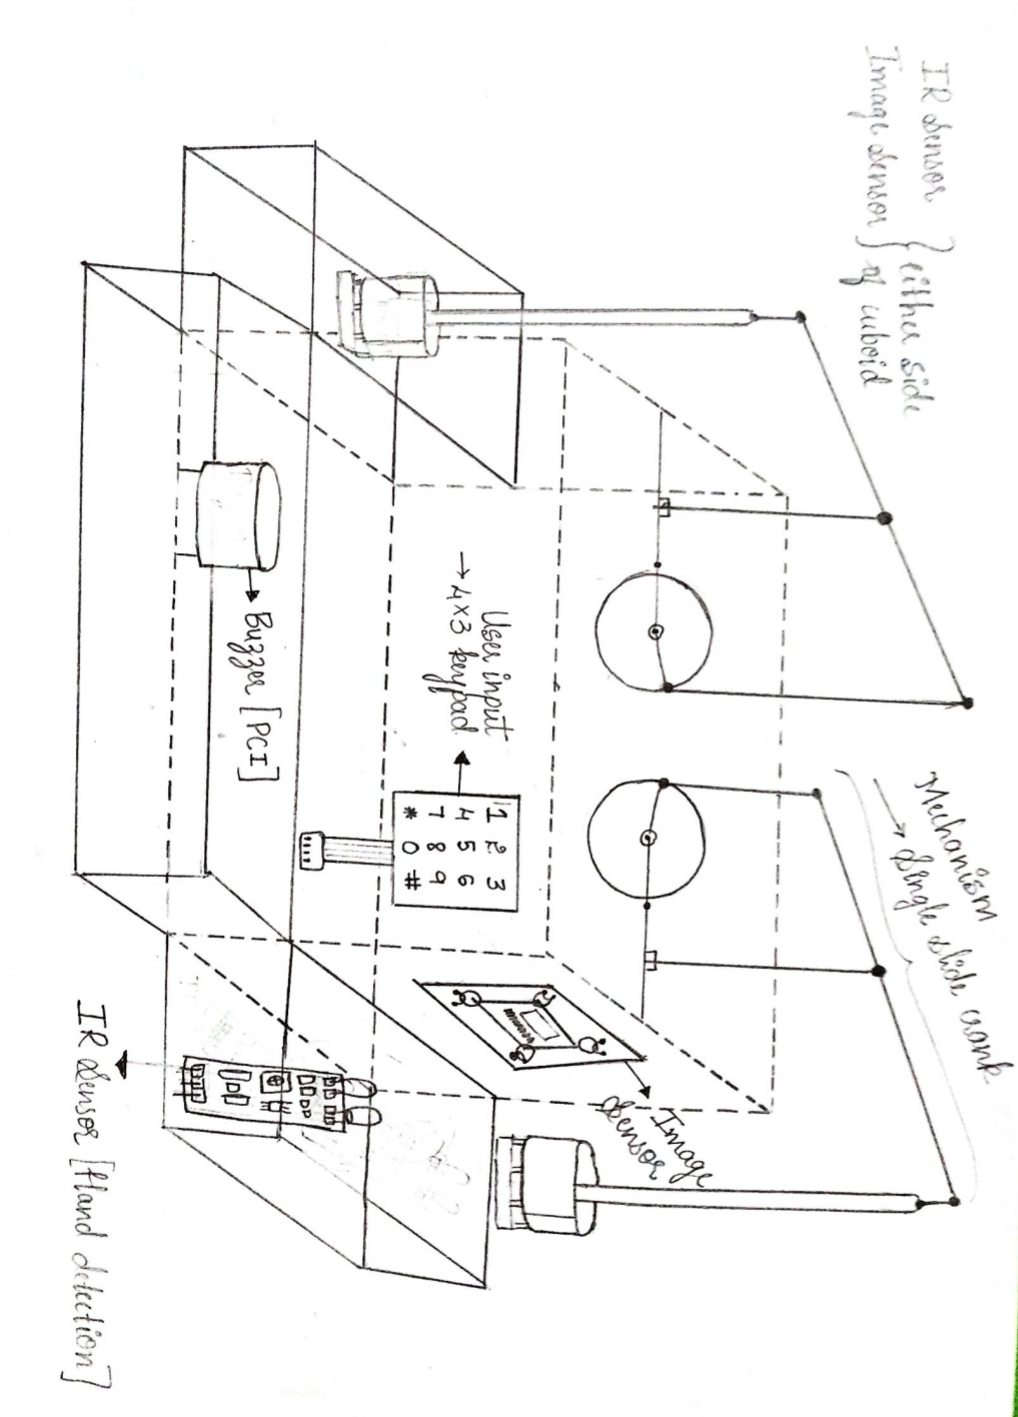 IR Sensor
Image Sensor
either side
of cuboid
Mechanism
→ Single slide crank
Image
Sensor
User input
→ 4×3 keypad
1 2 3
4 5 6
7 8 9
* 0 #
Buzzer [PCI]
IR Sensor [Hand detection]